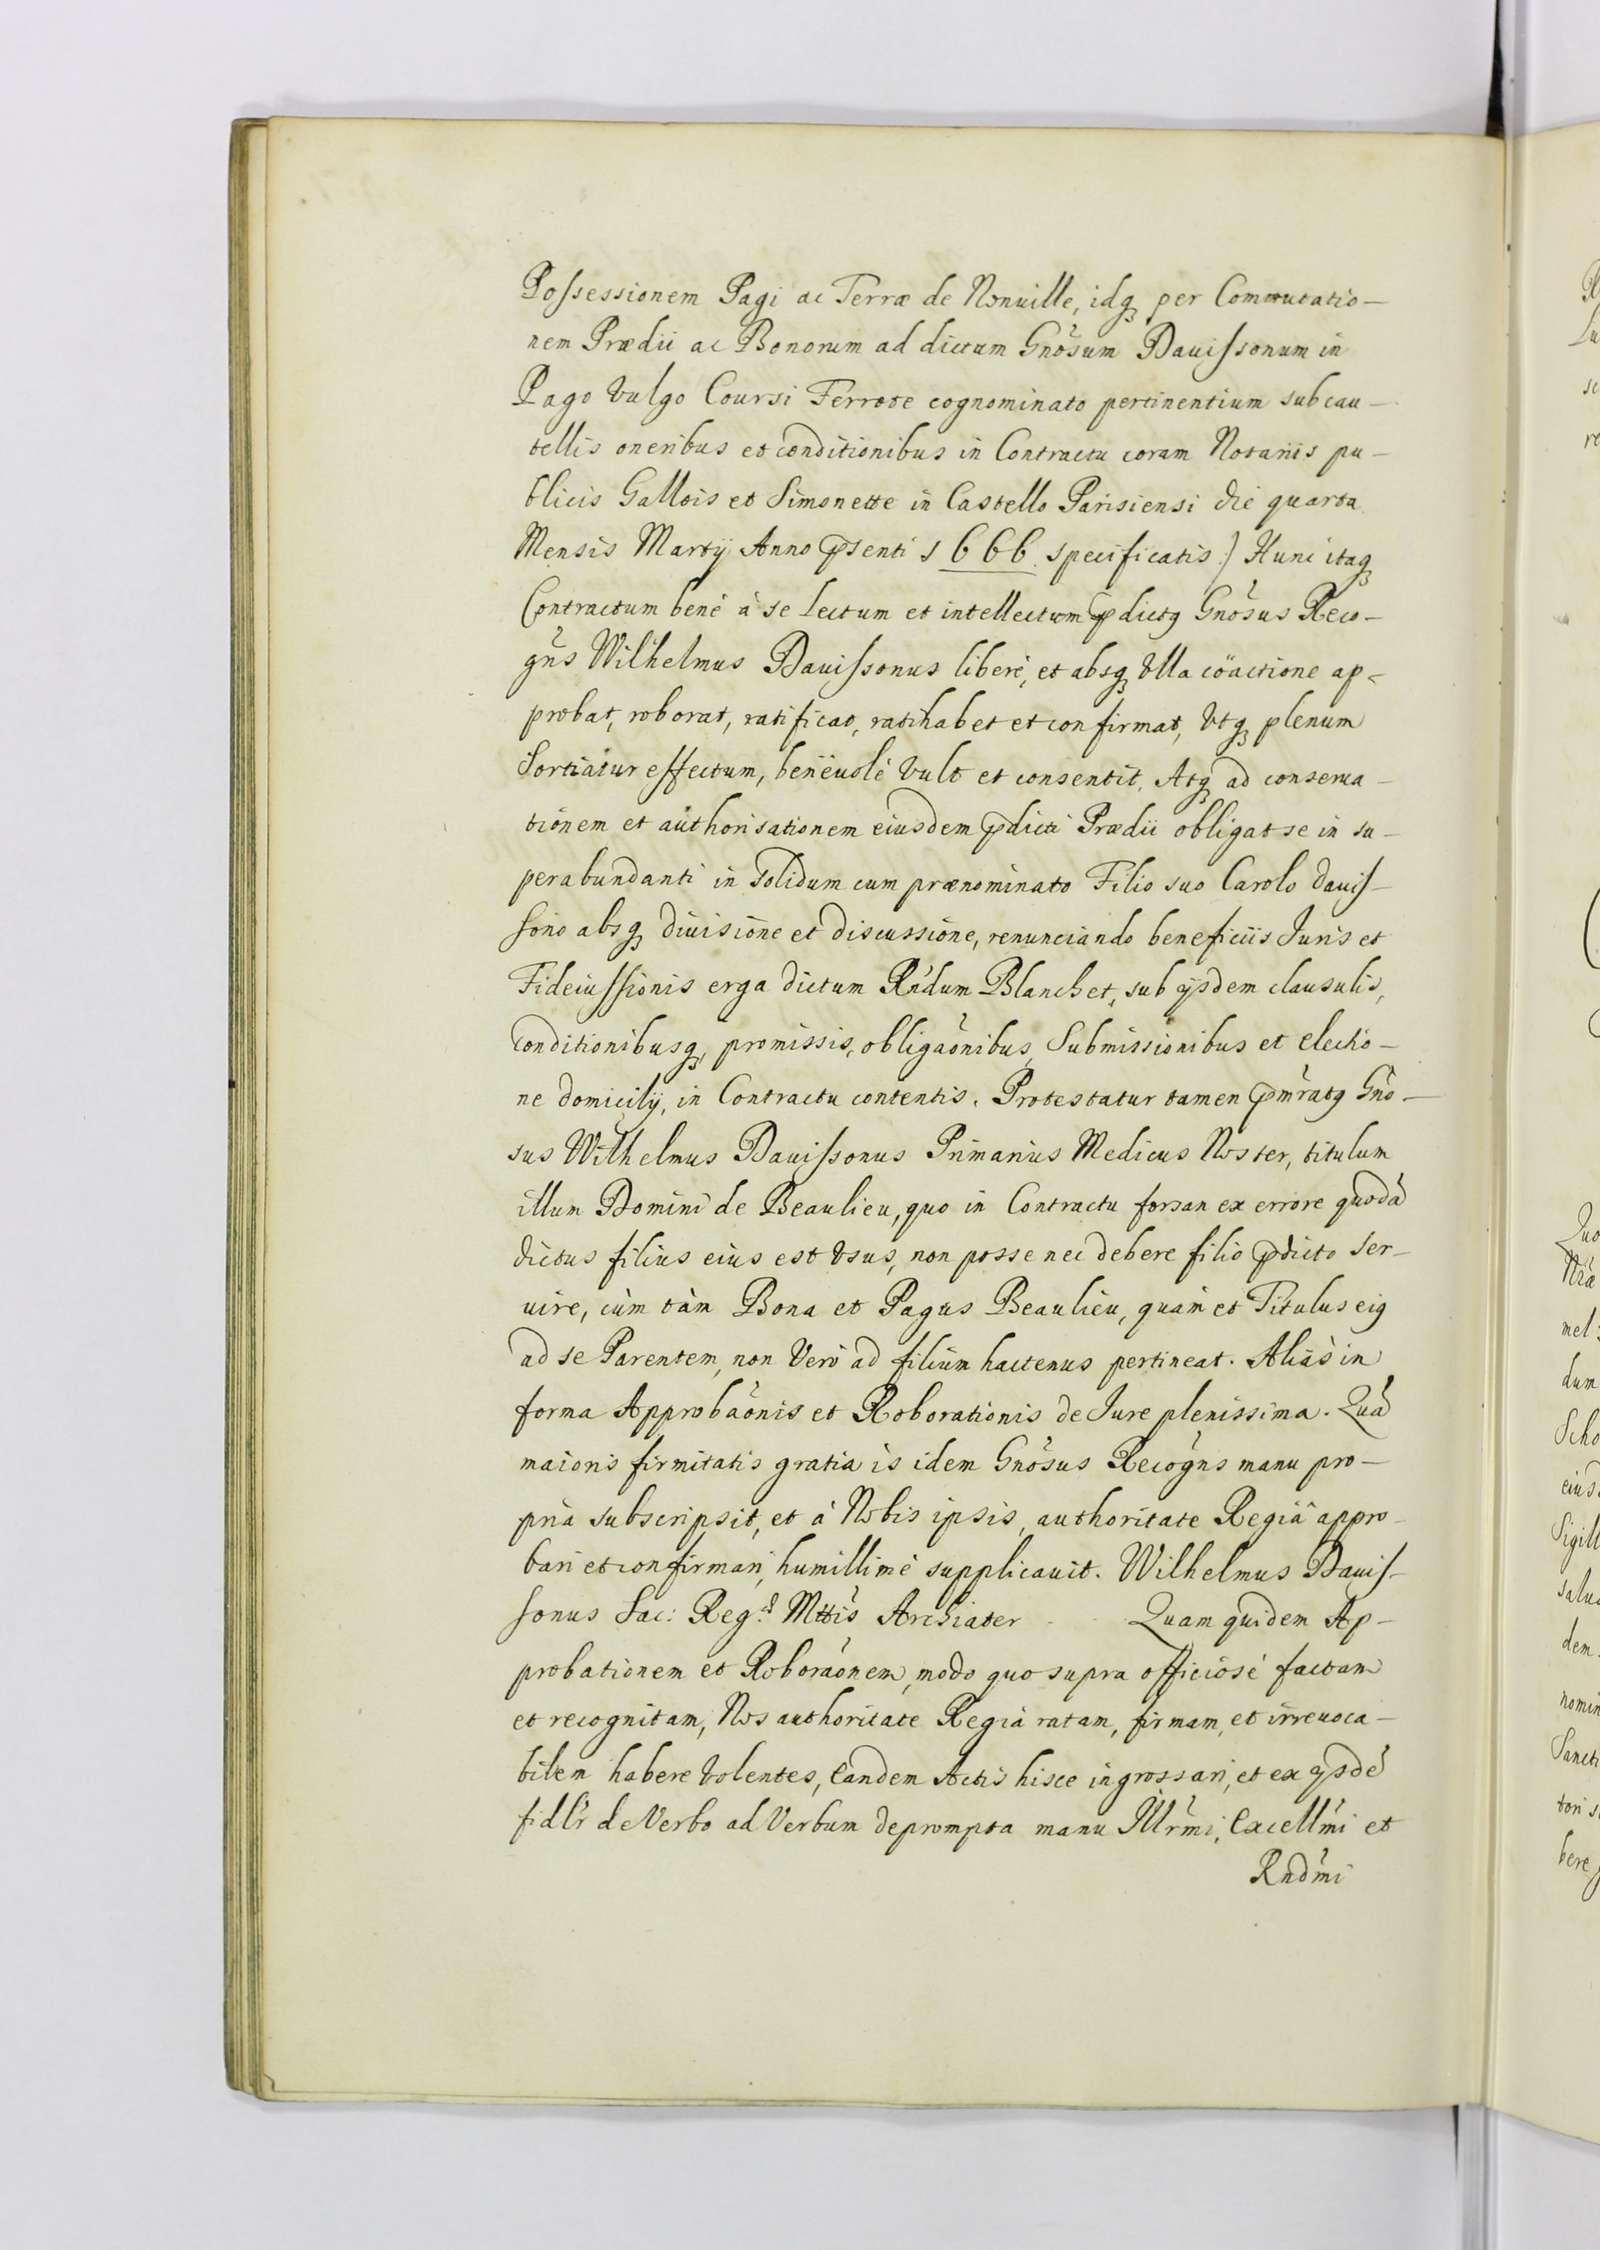 Possessionem Pagi ac Terræ de Nonuille, idq₃ per Commutatio–
nem Prædii ac Bonorum ad dictum Gnõsum Dauissonum in
Pago Vulgo Coursi Ferrote cognominato pertinentium sub cau–
tellis oneribus et conditionibus in Contractu coram Notariis pu–
blicis Gallois et Simonette in Castello Parisiensi die quarta
Mensis Martÿ Anno p̃senti 1666 specificatis:/ Hunc itaq₃
Contractum bené à se lectum et intellectum p̃dictꝯ Gnõsus Reco–
gñs Wilhelmus Dauissonus liberé, et absq₃ Vlla cöactione ap–
probat, roborat, ratificat, ratihabet et confirmat, Vtq₃ plenum
Sortiatur effectum, beneuolé Vult et consentit. Atq₃ ad conserua–
tionem et authorisationem eiusdem p̃dicti Prædii obligat se in su–
perabundanti in solidum cum prænominato Filio suo Carolo Dauis–
sono absq₃ diuisione et discussione, renunciando beneficiis Juris et
Fideiussionis erga dictum Rñdum Blanchet, sub ÿsdem clausulis,
conditionibusq₃, promissis, obligaõnibus, Submissionibus et electio–
ne domicilÿ, in Contractu contentis. Protestatur tamen p̃m̃ratꝯ Gnõ–
sus Wilhelmus Dauissonus Primarius Medicus Noster, titulum
illum Domini de Beaulieu, quo in Contractu forsan ex errore quodã
dictus filius eius est Vsus, non posse nec debere filio p̃dicto Ser–
uire, cùm tàm Bona et Pagus Beaulieu, quàm et Titulus eiꝯ
ad se Parentem, non Verò ad filium hactenus pertineat. Aliàs in
forma Approbaõnis et Roborationis de Jure plenissima. Quã
maioris firmitatis gratia is idem Gnõsus Recogñs manu pro–
pria subscripsit, et à Nobis ipsis, authoritate Regiâ appro–
bari et confirmari, humillimé supplicauit. Wilhelmus Dauis–
sonus Sac: Reg: Mttis Archiater Quam quidem Ap–
probationem et Roboraõnem, modo quo supra officiosé factam
et recognitam, Nos authoritate Regià ratam, firmam, et irreuoca–
bilem habere Volentes, Eandem Actis hisce ingrossari, et ex ÿsdẽ
fidlr̃ de Verbo ad Verbum deprompta manu Illr̃mi, Excellm̃i et
Rndm̃i